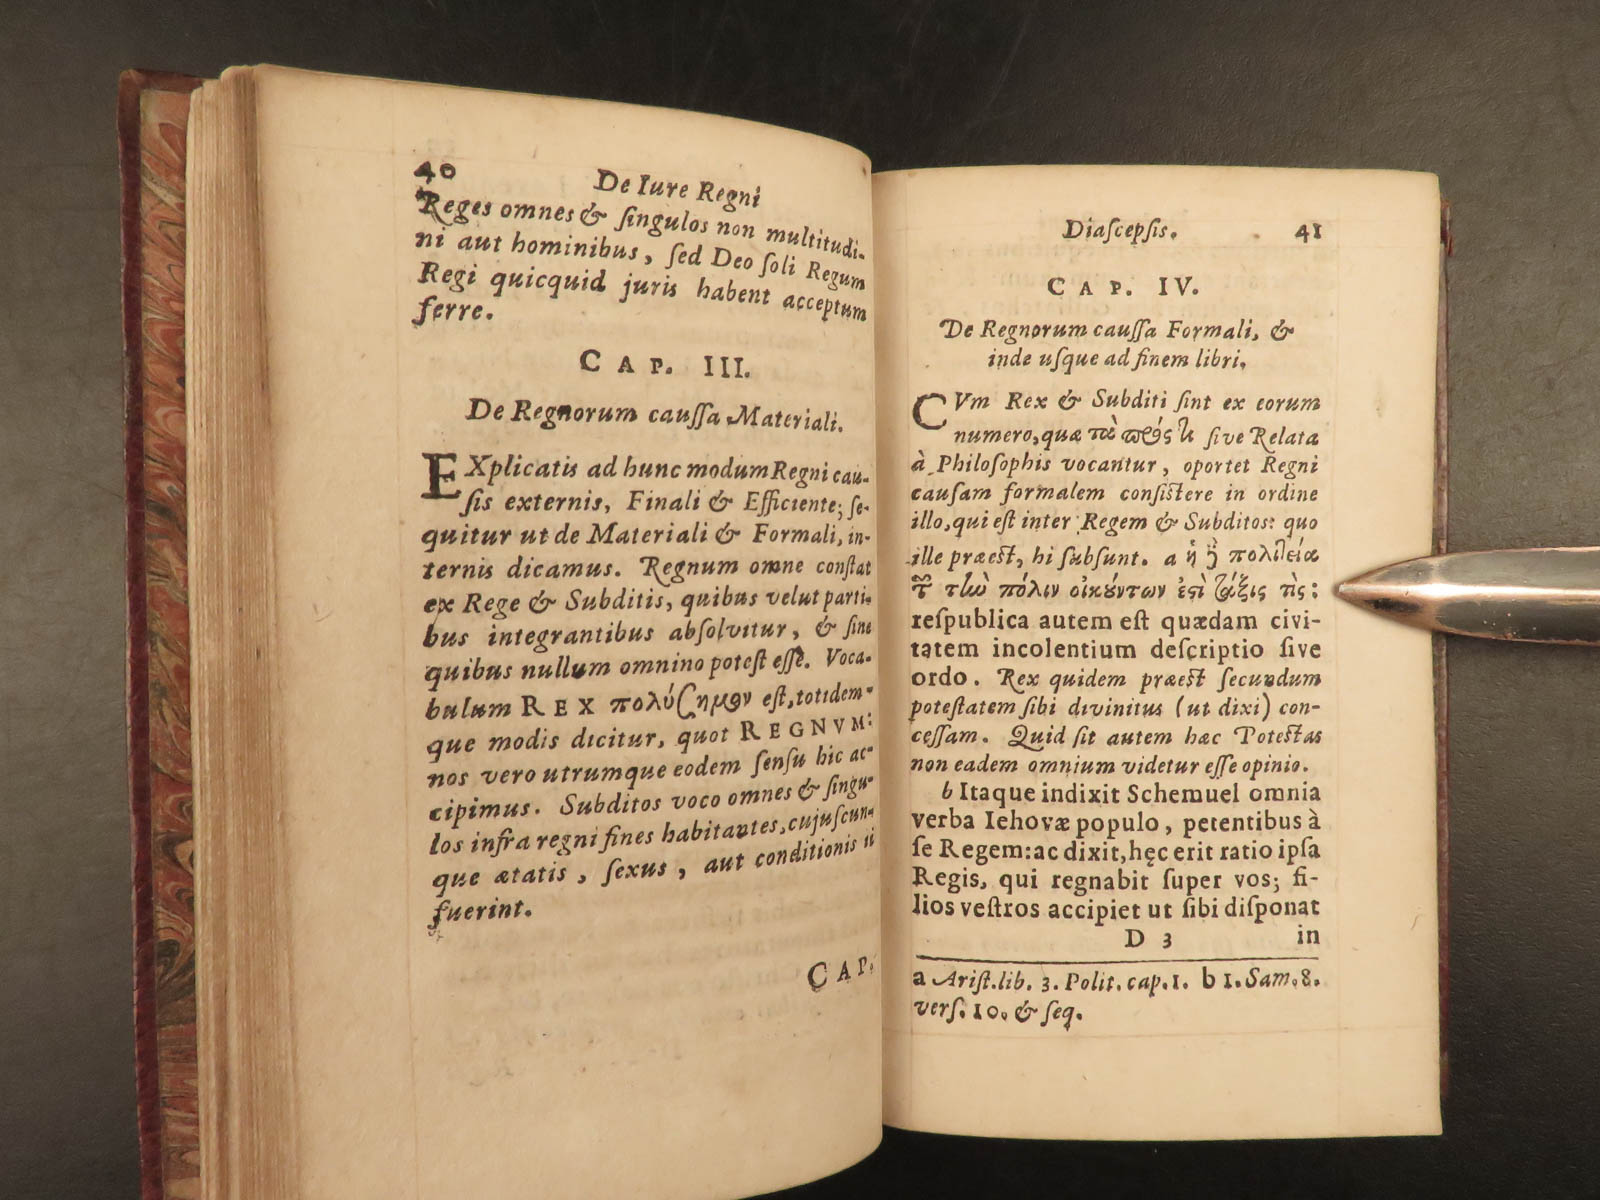 40 De Iure Regni
Reges omnes & ſingulos non multitudi-
ni aut hominibus, ſed Deo ſoli Regum
Regi quicquid juris habent acceptum
ferre.
CAP. III.
De Regnorum cauſſa Materiali.
EXplicatis ad hunc modum Regni cau-
ſis externis, Finali & Efficiente; ſe-
quitur ut de Materiali & Formali, in-
ternis dicamus. Regnum omne conſtat
ex Rege & Subditis, quibus velut parti-
bus integrantibus abſolvitur, & ſine
quibus nullum omnino poteſt eſſe. Voca-
bulum REX πολύσημον eſt, totidem-
que modis dicitur, quot REGNVM:
nos vero utrumque eodem ſenſu hic ac-
cipimus. Subditos voco omnes & ſingu-
los infra regni fines habitantes, cujuſcun-
que ætatis, ſexus, aut conditionis ii
fuerint.
CAP.
Diaſcepſis. 41
CAP. IV.
De Regnorum cauſſa Formali, &
inde uſque ad finem libri.
CVm Rex & Subditi ſint ex eorum
numero, quæ τὰ πρός τι ſive Relata
à Philoſophis vocantur, oportet Regni
cauſam formalem conſiſtere in ordine
illo, qui eſt inter Regem & Subditos: quo
ille præeſt, hi ſubſunt. a ἡ δὲ πολιτεία
τῶν τὴν πόλιν οἰκούντων ἐστὶ τάξις τὶς:
reſpublica autem eſt quædam civi-
tatem incolentium deſcriptio ſive
ordo. Rex quidem præeſt ſecundum
poteſtatem ſibi divinitus (ut dixi) con-
ceſſam. Quid ſit autem hæc Poteſtas
non eadem omnium videtur eſſe opinio.
b Itaque indixit Schemuel omnia
verba Iehovæ populo, petentibus à
ſe Regem: ac dixit, hęc erit ratio ipſa
Regis, qui regnabit ſuper vos; fi-
lios veſtros accipiet ut ſibi diſponat
D 3 in
a Ariſt. lib. 3. Polit. cap. 1. b 1. Sam. 8.
verſ. 10. & ſeq.